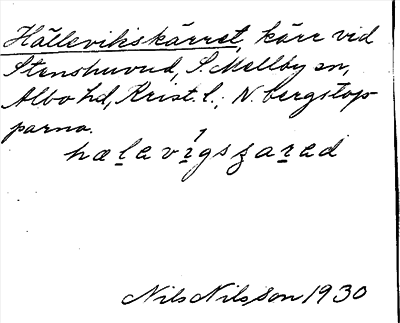 Hällevikskärret, kärr vid
Stenshuvud, S. Mellby sn,
Albo hd, Krist. l.; N. bergstop-
parna.
hælevigsʒared
Nils Nilsson 1930